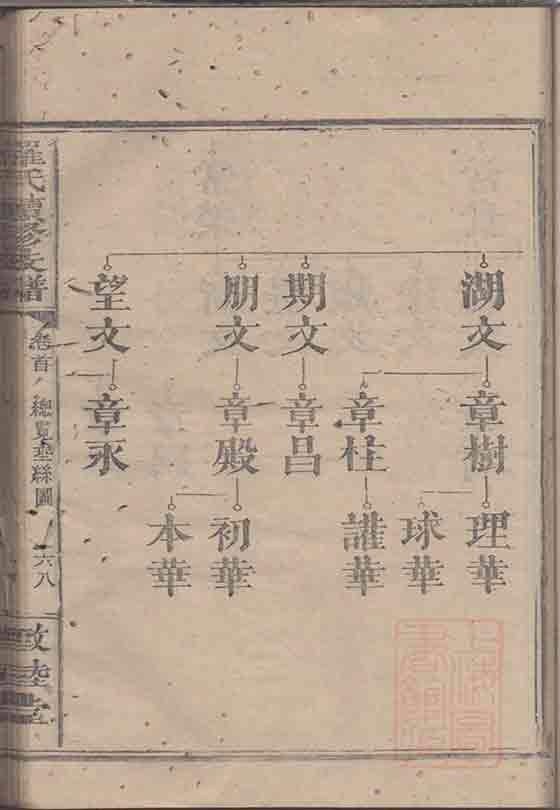 湖文
期文
朋文
望文
章樹
章柱
章昌
章殿
章永
理華
球華
誰華
初華
本華
羅氏續修支譜
卷首
總覽垂絲圖
六八
敦陸堂